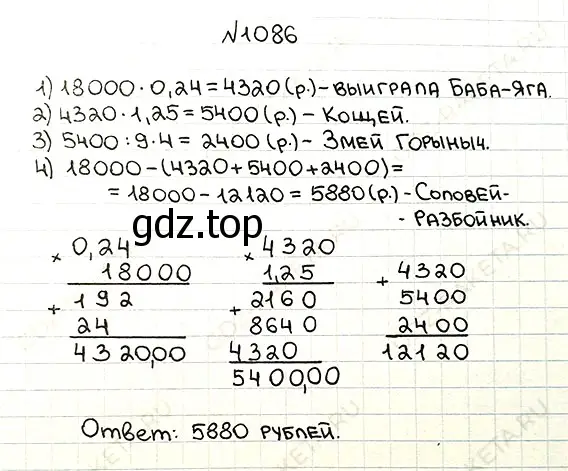 №1086
1) 18000·0,24=4320(р.)-выиграла Баба-Яга.
2) 4320·1,25=5400(р.)-Кощей.
3) 5400:9·4=2400(р.)-Змей Горыныч.
4) 18000-(4320+5400+2400)=
=18000-12120=5880(р.)-Соловей-
-разбойник.
gdz.top
× 0,24
18000
+ 192
24
4320,00
× 4320
1,25
+ 2160
8640
4320
5400,00
+ 4320
5400
2400
12120
Ответ: 5880 рублей.